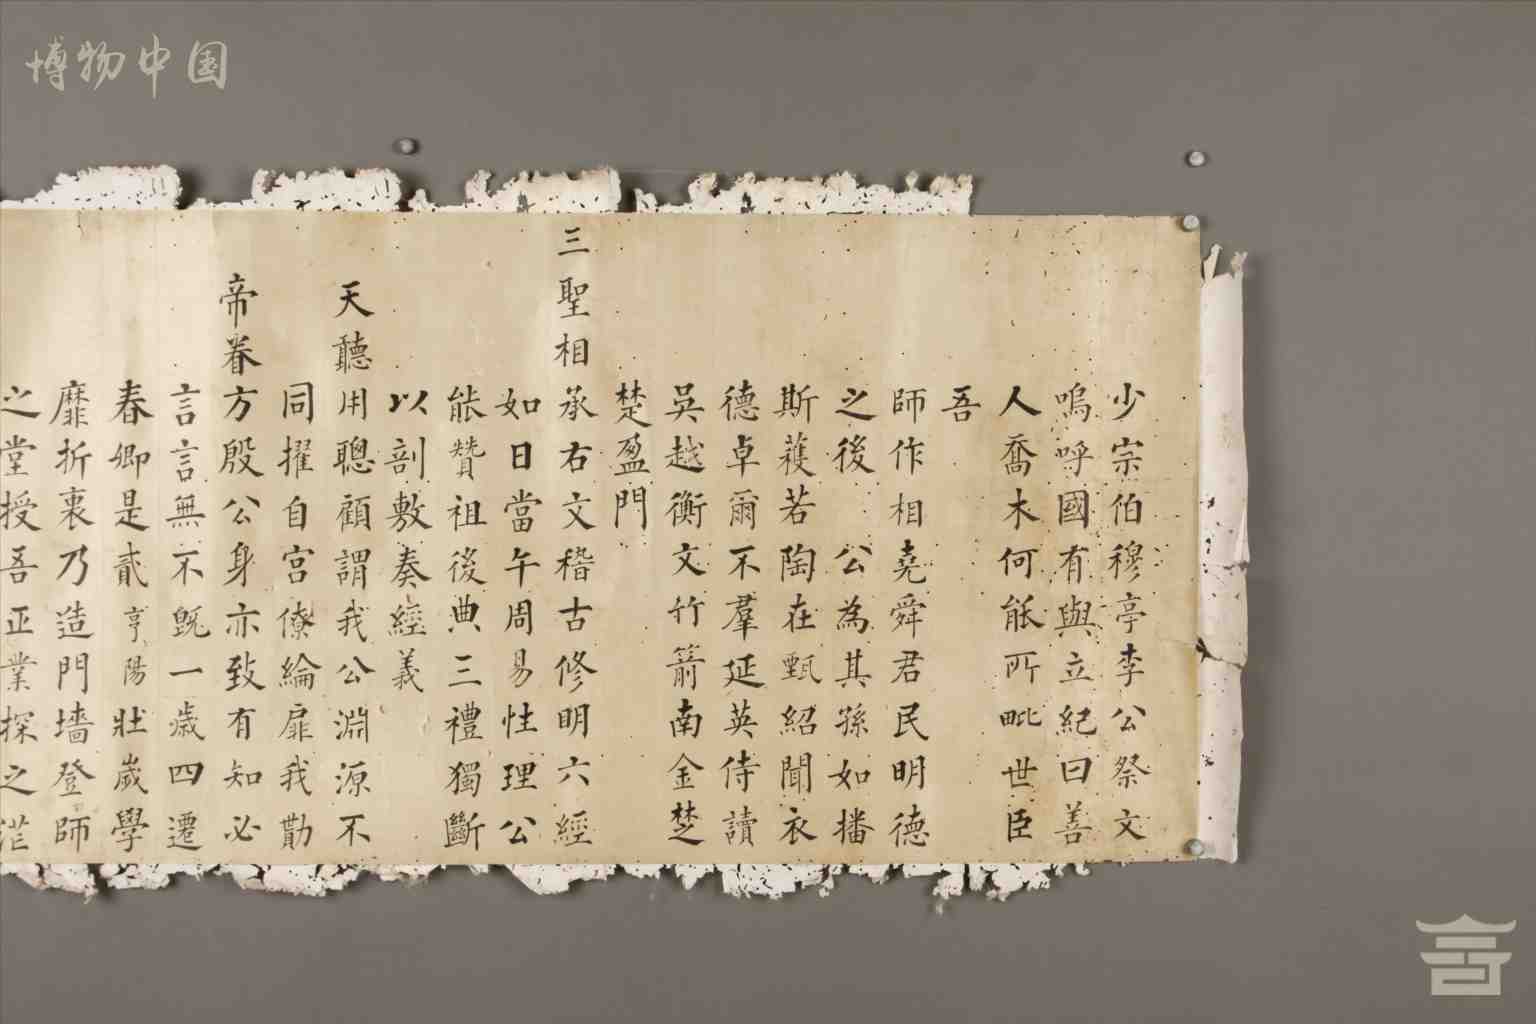 博物中国
少宗伯穆亭李公祭文
嗚呼國有與立紀曰善
人喬木何能所毗世臣
吾
師作相堯舜君民明德
之後公為其孫如播
斯蓘若陶在甄紹聞衣
德卓爾不羣延英侍讀
吳越衡文竹箭南金楚
楚盈門
三聖相承右文稽古修明六經
如日當午周易性理公
能贊祖後典三禮獨斷
以剖敷奏經義
天聽用聰顧謂我公淵源不
同擢自宮僚綸扉我勛
帝眷方殷公身亦致有知必
言言無不既一歲四遷
春卿是貳亨陽壯歲學
靡折衷乃造門墻登師
之堂授吾正業探之茫